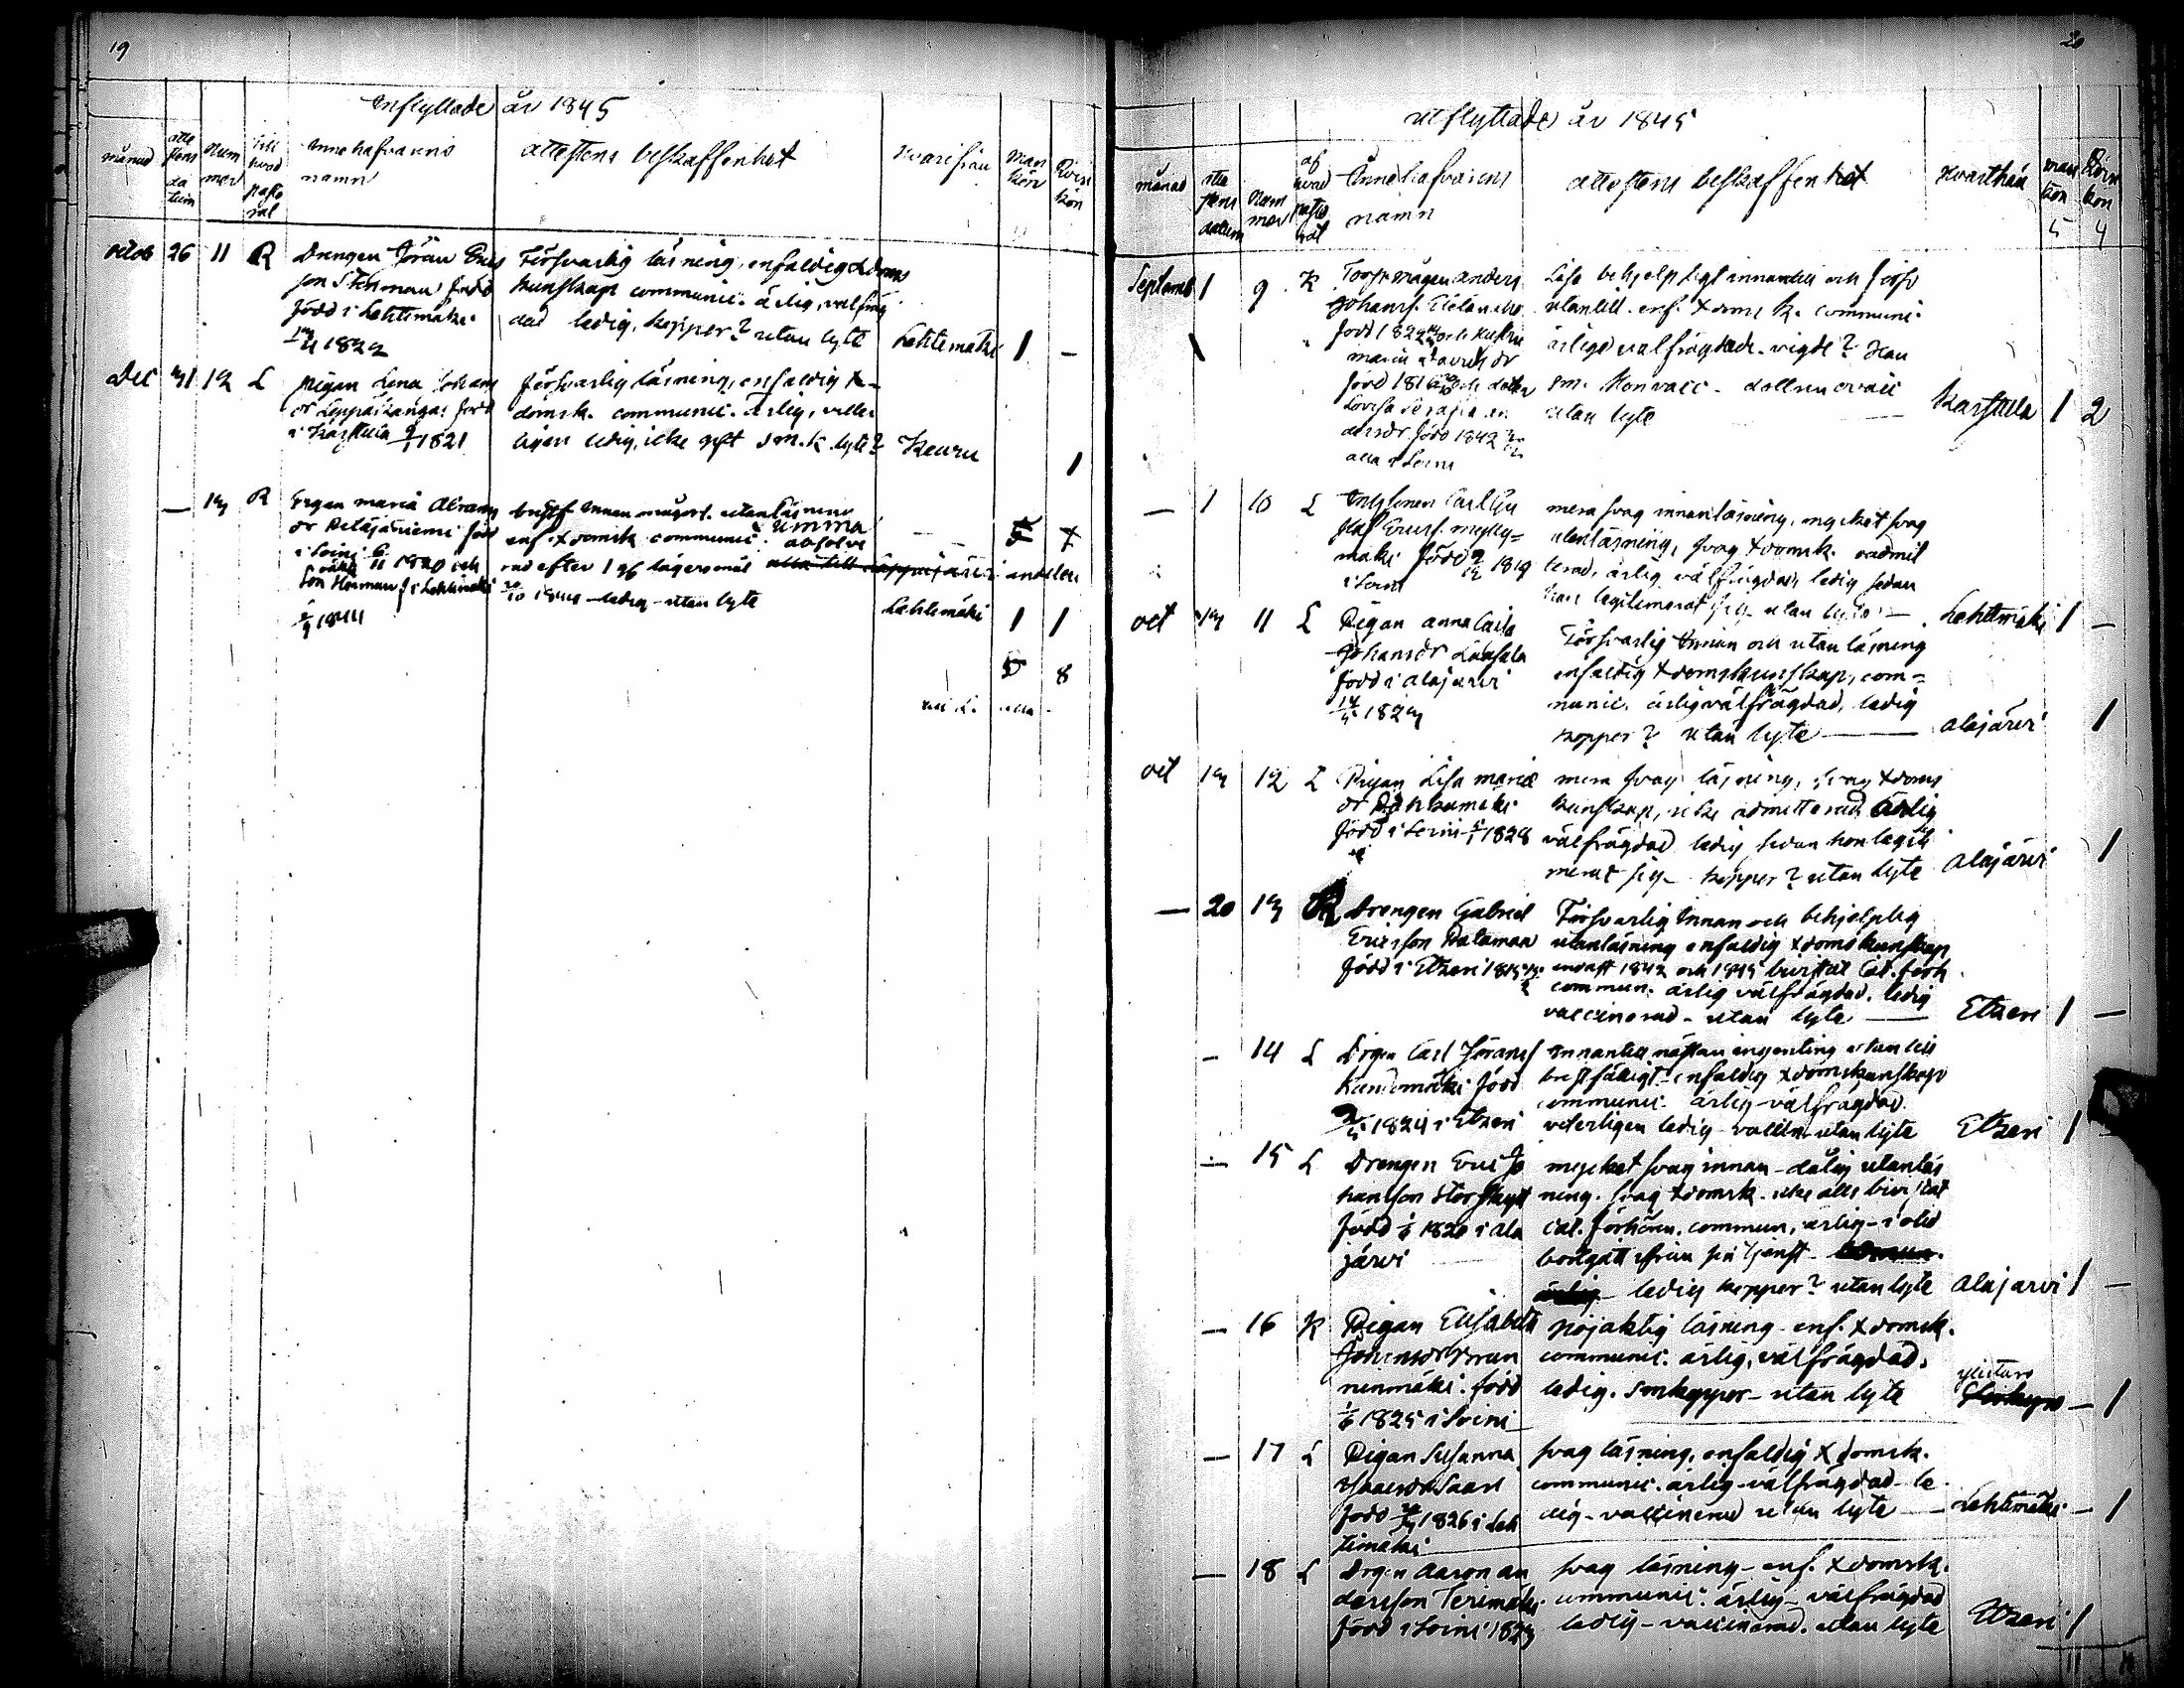 19
Inflyttade år 1845
månad
atte
stens
da
tum
Num
mer
Till
hvad
pasto
rat
Innehafvarens
namn
attestens beskaffenhet
Hvarifrån
Man
kön
Qvin
kön
Octob 26 11 R
Drengen Jöran Erics
son Stenman född
född i Lehtimäki
1822
Försvarlig läsning, enfaldig Xdoms
kunskap communic. ärlig, välfräg
dad ledig, kopper? utan lyte
Lehtimäki 1 –
Dec 12 L
pigan Lena Johans
dr Leppäkangas född
i Karstula 1821
försvarlig läsning, enfaldig X
domsk. communic. ärlig, veter
ligen ledig, icke gift s.m.k. lyte?
Keuru
1
— R
Pigan maria Abrams
dr född
i Soini 1820 och
son Herman f. i Lehtimäki
1844
innan utanläsning
enf. Xdomsk communic. absolve
rad efter lägersmål
1844 – ledig – utan lyte
Lehtimäki 1 1
8
20
utflyttade år 1845
månad
atte
stens
datum
Num
mer
af
hvad
pasto
rat
Innehafvarens
namn
attestens beskaffenhet
Hvarthän
man
kön
5
Qvin
kön
4
Septemb 1 9 K
Torpmågen Anders
Johanss.
född 1822 och hustru
maria
född och dotter
Lovisa Serafia an
dersdr född 1842
alla i Soini
Läsa behjelpligt innantill och
utantill. enf. Xdoms k. communi.
ärlige välfrägdade. vigde? Han
sm. Hon vacc. dottren ovacc
utan lyte
Karstula 1 2
— 1 10 L
Inhysesm Carl Gu
staf Ericss. mylly=
mäki född 1819
i Soini
mera svag innanläsning, mycket svag
utanläsning, svag Xdomsk. oadmit
terad, ärlig välfrägdad, ledig sedan
han legitimerat sig – utan lyte –
Lehtimäki 1 –
oct 11 L
Pigan anna Caisa
Johansdr
född i alajärvi
182
Försvarlig innan och utanläsning
enfaldig Xdomskunskap, com=
munic. ärlig välfrägdad, ledig
kopper? utan lyte
alajärvi 1
oct 12 L
Pigan Lisa maria
dr
född i Soini 1828
mera svag läsning, svag Xdoms
kunskap, icke admitterad ärlig
välfrägdad ledig sedan hon legiti
merat sig – kopper? utan lyte
alajärvi 1
— 20 13 R
Drengen Gabriel
Ericsson Palaman
född i Etseri
Försvarlig innan och behjelplig
utanläsning enfaldig Xdomskunskap
endast 1842 och 1845 bivistat Cat. förh
commun. ärlig välfrägdad. ledig
vaccinerad – utan lyte
Etseri 1 –
– 14 L
Drgen Carl Jöranss
född
1824 i Etseri
Innantill nästan ingenting utantill
bristfälligt – enfaldig Xdomskunskap
communic. ärlig – välfrägdad
veterligen ledig – vaccin – utan lyte
Etseri 1 –
– 15 L
Drengen Eric Jo
hansson
född 1820 i ala
järvi
mycket svag innan – dålig utanläs
ning. svag Xdomsk. icke alls bivistat
cat. förhören. commun. ärlig – i otid
bortgått ifrån sin tjenst –
ärlig – ledig kopper? utan lyte
alajärvi 1 –
— 16 K
Pigan Elisabeth
Johansdr
ninmäki. född
1825 i Soini
Nöjaktig läsning – enf. Xdomsk.
communic. ärlig, välfrägdad,
ledig. smkopper – utan lyte
ylistaro
– 1
– 17 L
Pigan Susanna
Saari
född 1826 i Leh
timäki
svag läsning, enfaldig Xdomsk.
communic. ärlig – välfrägdad – le
dig – vaccinerad utan lyte –
Lehtimäki – 1
— 18 L
Drgen Aaron an
dersson Terimäki
född i Soini
svag läsning – enf. Xdomsk.
communic. ärlig – välfrägdad
ledig – vaccinerad. utan lyte
Etseri 1
11